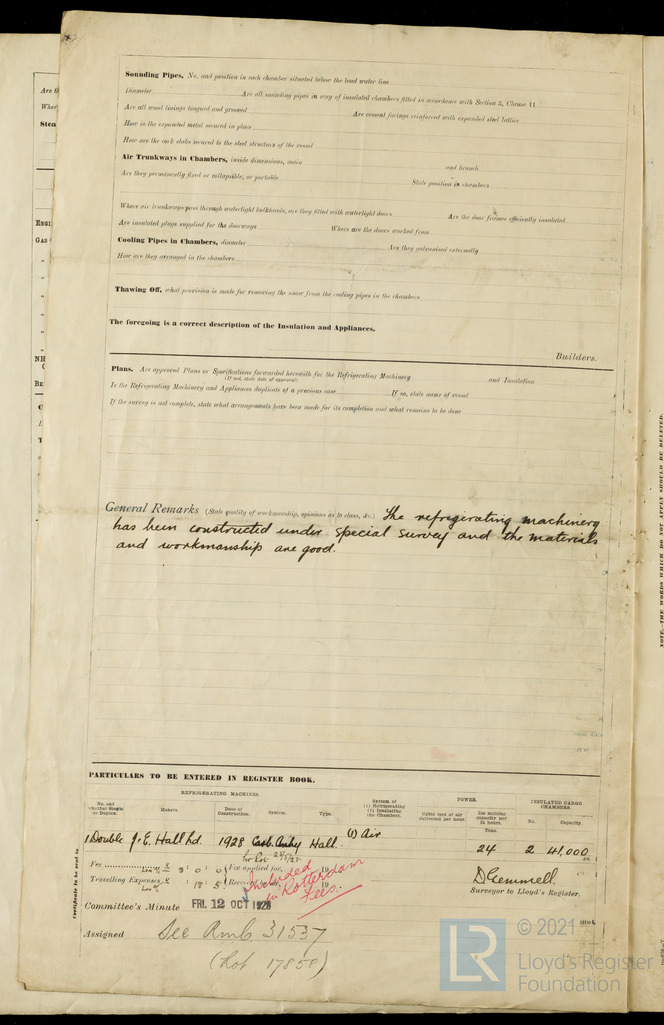 Sounding Pipes, No. and position in each chamber situated below the load water line
Diameter Are all sounding pipes in way of insulated chambers fitted in accordance with Section 3, Clause 11
Are all wood linings tongued and grooved Are cement facings reinforced with expanded steel lattice
How is the expanded metal secured in place
How are the cork slabs secured to the steel structure of the vessel
Air Trunkways in Chambers, inside dimensions, main and branch
Are they permanently fixed or collapsible, or portable State position in chambers
Where air trunkways pass through watertight bulkheads, are they fitted with watertight doors Are the door frames efficiently insulated
Are insulated plugs supplied for the doorways Where are the doors worked from
Cooling Pipes in Chambers, diameter Are they galvanised externally
How are they arranged in the chambers
Thawing Off, what provision is made for removing the snow from the cooling pipes in the chambers
The foregoing is a correct description of the Insulation and Appliances.
Builders.
Plans. Are approved Plans or Specifications forwarded herewith for the Refrigerating Machinery and Insulation
(If not, state date of approval)
Is the Refrigerating Machinery and Appliances duplicate of a previous case If so, state name of vessel
If the survey is not complete, state what arrangements have been made for its completion and what remains to be done
General Remarks (State quality of workmanship, opinions as to class, &c.) The refrigerating machinery
has been constructed under special survey and the materials
and workmanship are good.
PARTICULARS TO BE ENTERED IN REGISTER BOOK.
REFRIGERATING MACHINES.
No. and whether Single or Duplex. Makers. Date of Construction. System. Type. System of (1) Refrigerating (2) Insulating the Chambers. POWER. Cubic feet of air delivered per hour. Ice melting capacity per 24 hours. Tons. INSULATED CARGO CHAMBERS. No. Capacity.
1 Double J. & E. Hall Ld. 1928 Carb. Anhy Hall. (1) Air 24 2 41,000
Fee Lon 3 : 0 : 0 Fee applied for, 19
Travelling Expenses £ 13 : 5 Received 19
Included in Rotterdam Fees.
D. Gemmell.
Surveyor to Lloyd's Register.
Committee's Minute FRI. 12 OCT 1928
Assigned See Rmb. 31537
(Rot 17858)
Certificate to be sent to
NOTE.—THE WORDS WHICH DO NOT APPLY SHOULD BE DELETED.
© 2021
LR
Lloyd's Register
Foundation